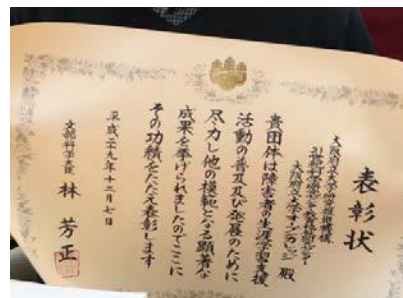 表彰状
大阪府立大学高等教育推進機構
大阪府立大学オープンカレッジ 殿
貴団体は障害者の生涯学習支援
活動の普及及び発展のために
尽力し他の模範となる顕著な
成果を挙げられましたのでここに
その功績をたたえ表彰します
平成二十九年十二月七日
文部科学大臣 林 芳正